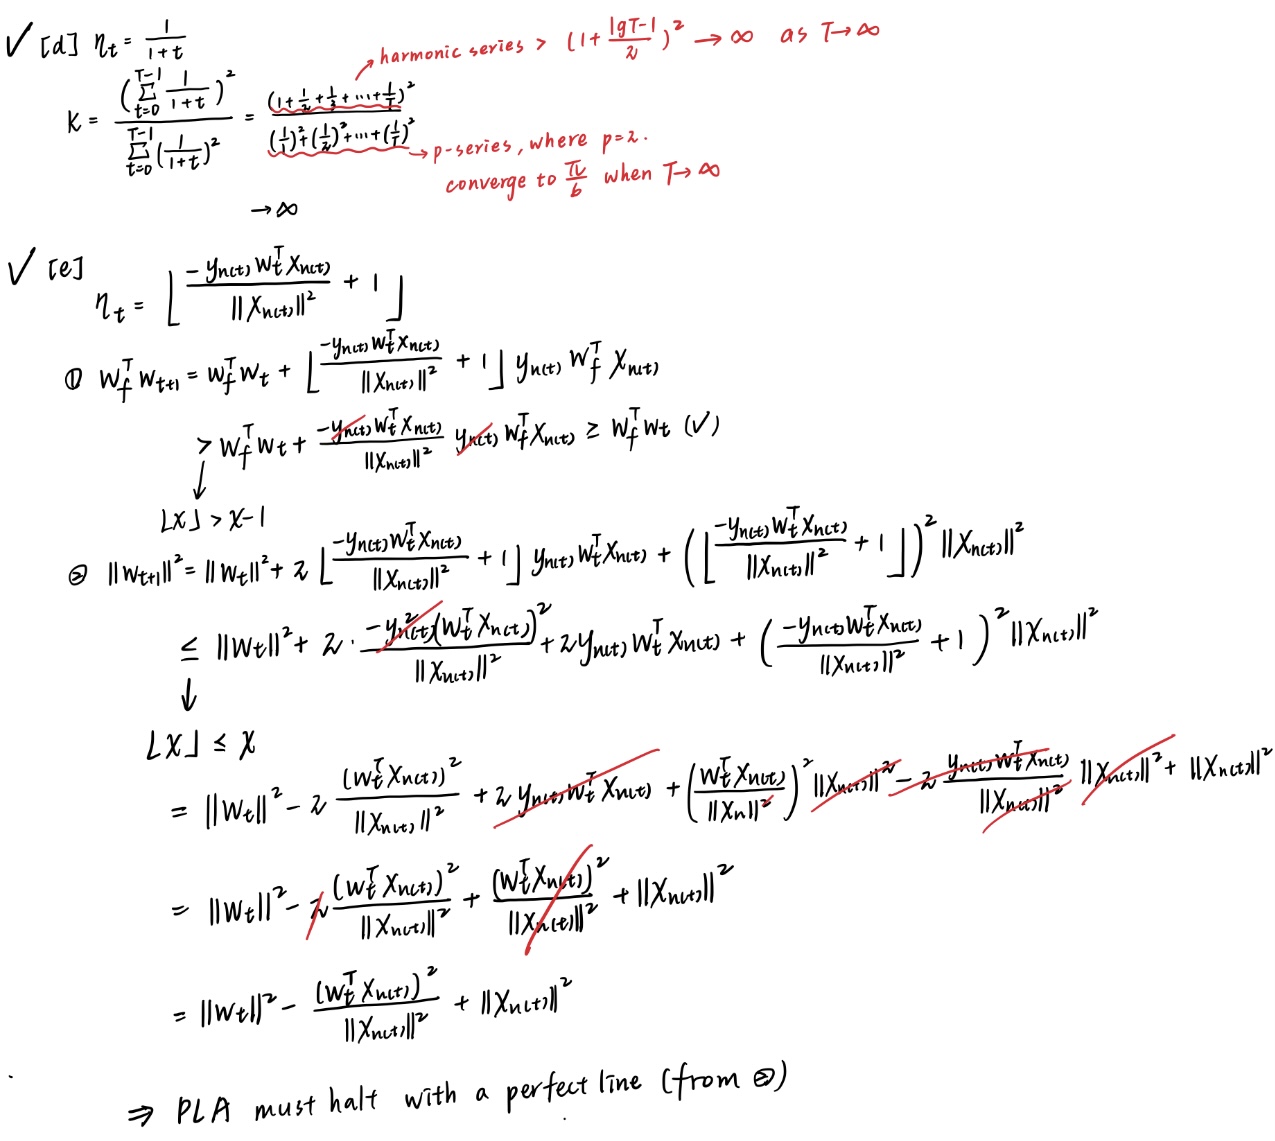 ✓ [d] η_t = 1/(1+t)
→ harmonic series > (1 + (lgT-1)/2)² → ∞ as T→∞
K = (∑_{t=0}^{T-1} 1/(1+t))² / ∑_{t=0}^{T-1} (1/(1+t))² = (1+1/2+1/3+⋯+1/T)² / ((1/1)²+(1/2)²+⋯+(1/T)²)
→ p-series, where p=2.
converge to π/6 when T→∞
→ ∞
✓ [e]
η_t = ⌊ (-y_n(t) W_t^T X_n(t)) / ||X_n(t)||² + 1 ⌋
① W_f^T W_{t+1} = W_f^T W_t + ⌊ (-y_n(t) W_t^T X_n(t)) / ||X_n(t)||² + 1 ⌋ y_n(t) W_f^T X_n(t)
> W_f^T W_t + (-y_n(t) W_t^T X_n(t)) / ||X_n(t)||² y_n(t) W_f^T X_n(t) ≥ W_f^T W_t (✓)
↓
⌊X⌋ > X-1
② ||W_{t+1}||² = ||W_t||² + 2 ⌊ (-y_n(t) W_t^T X_n(t)) / ||X_n(t)||² + 1 ⌋ y_n(t) W_t^T X_n(t) + ( ⌊ (-y_n(t) W_t^T X_n(t)) / ||X_n(t)||² + 1 ⌋ )² ||X_n(t)||²
≤ ||W_t||² + 2 · (-y²_n(t) (W_t^T X_n(t))²) / ||X_n(t)||² + 2 y_n(t) W_t^T X_n(t) + ( (-y_n(t) W_t^T X_n(t)) / ||X_n(t)||² + 1 )² ||X_n(t)||²
↓
⌊X⌋ ≤ X
= ||W_t||² - 2 (W_t^T X_n(t))² / ||X_n(t)||² + 2 y_n(t) W_t^T X_n(t) + ( W_t^T X_n(t) / ||X_n||² )² ||X_n(t)||² - 2 (y_n(t) W_t^T X_n(t)) / ||X_n(t)||² ||X_n(t)||² + ||X_n(t)||²
= ||W_t||² - 2 (W_t^T X_n(t))² / ||X_n(t)||² + (W_t^T X_n(t))² / ||X_n(t)||² + ||X_n(t)||²
= ||W_t||² - (W_t^T X_n(t))² / ||X_n(t)||² + ||X_n(t)||²
⇒ PLA must halt with a perfect line (from ②)